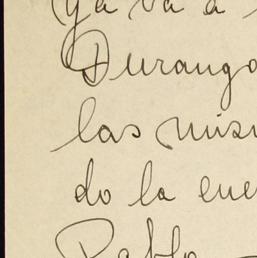 ya va a
Durango
las mism
do la cue
Pablo